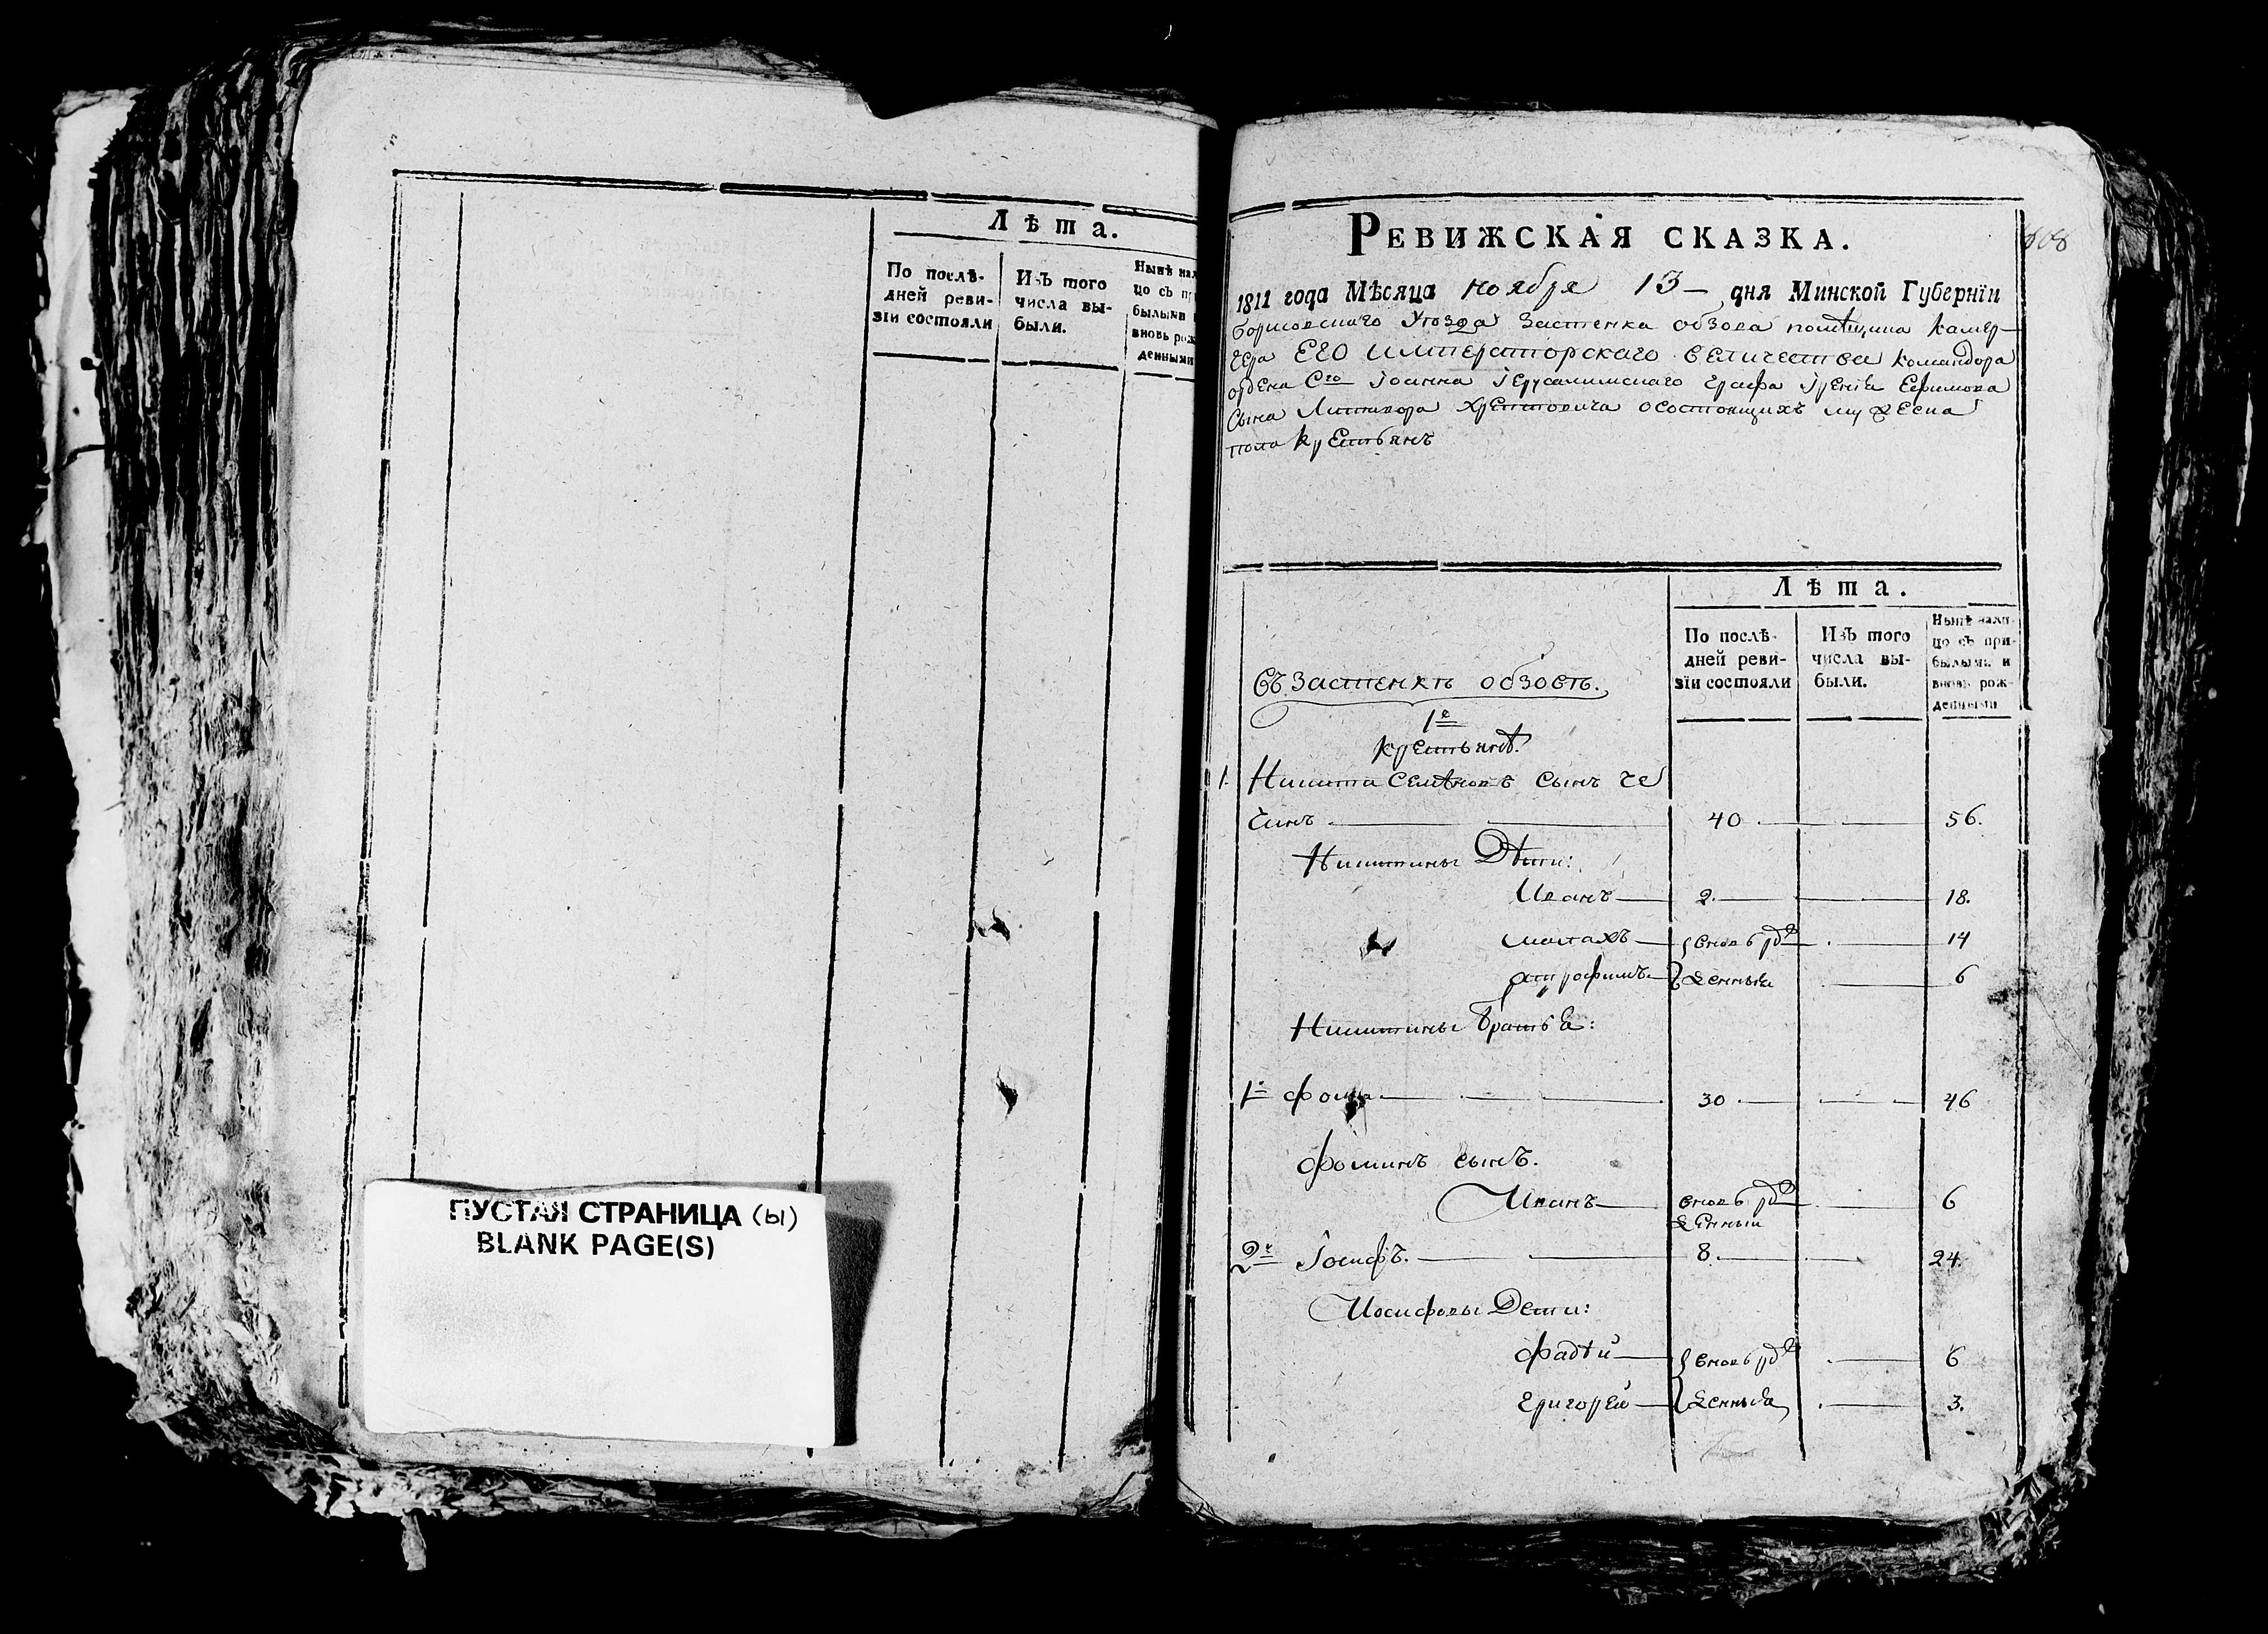 Лѣта.
По послѣ-
дней реви-
зіи состояли
Изъ того
числа вы-
были.
Нынѣ нал
цо съ пр
былыми
вновь рож
денными
ПУСТАЯ СТРАНИЦА (ы)
BLANK PAGE(S)
Ревижская сказка.
608
1811 года Мѣсяца ноября 13 дня Минской Губерніи
Борисовскаго Уѣзда Застенка обзова помѣщика камер-
гера Его Императорскаго величества командора
ордена Сго Іоанна Іерусалимскаго графа Ефимова
сына Литавора Хрептовича о состоящихъ мужеска
пола крестьянъ
Лѣта.
По послѣ-
дней реви-
зіи состояли
Изъ того
числа вы-
были.
Нынѣ нали-
цо съ при-
былыми и
вновь рож-
денными
Въ Застенкѣ обзовѣ.
1е
крестьянѣ.
1. Никита Семѣновъ сынъ че
чинъ 40 56.
Никитины Дѣти:
Иванъ 2. 18.
малахъ вновь рож 14
денныя 6
Никитины братья:
1й фома 30 46
фоминъ сынъ.
Иванъ вновь рож 6
денный
2й Іосифъ. 8. 24.
Иосифовы Дети:
фадѣй вновь рож 6
григорей денныя 3.